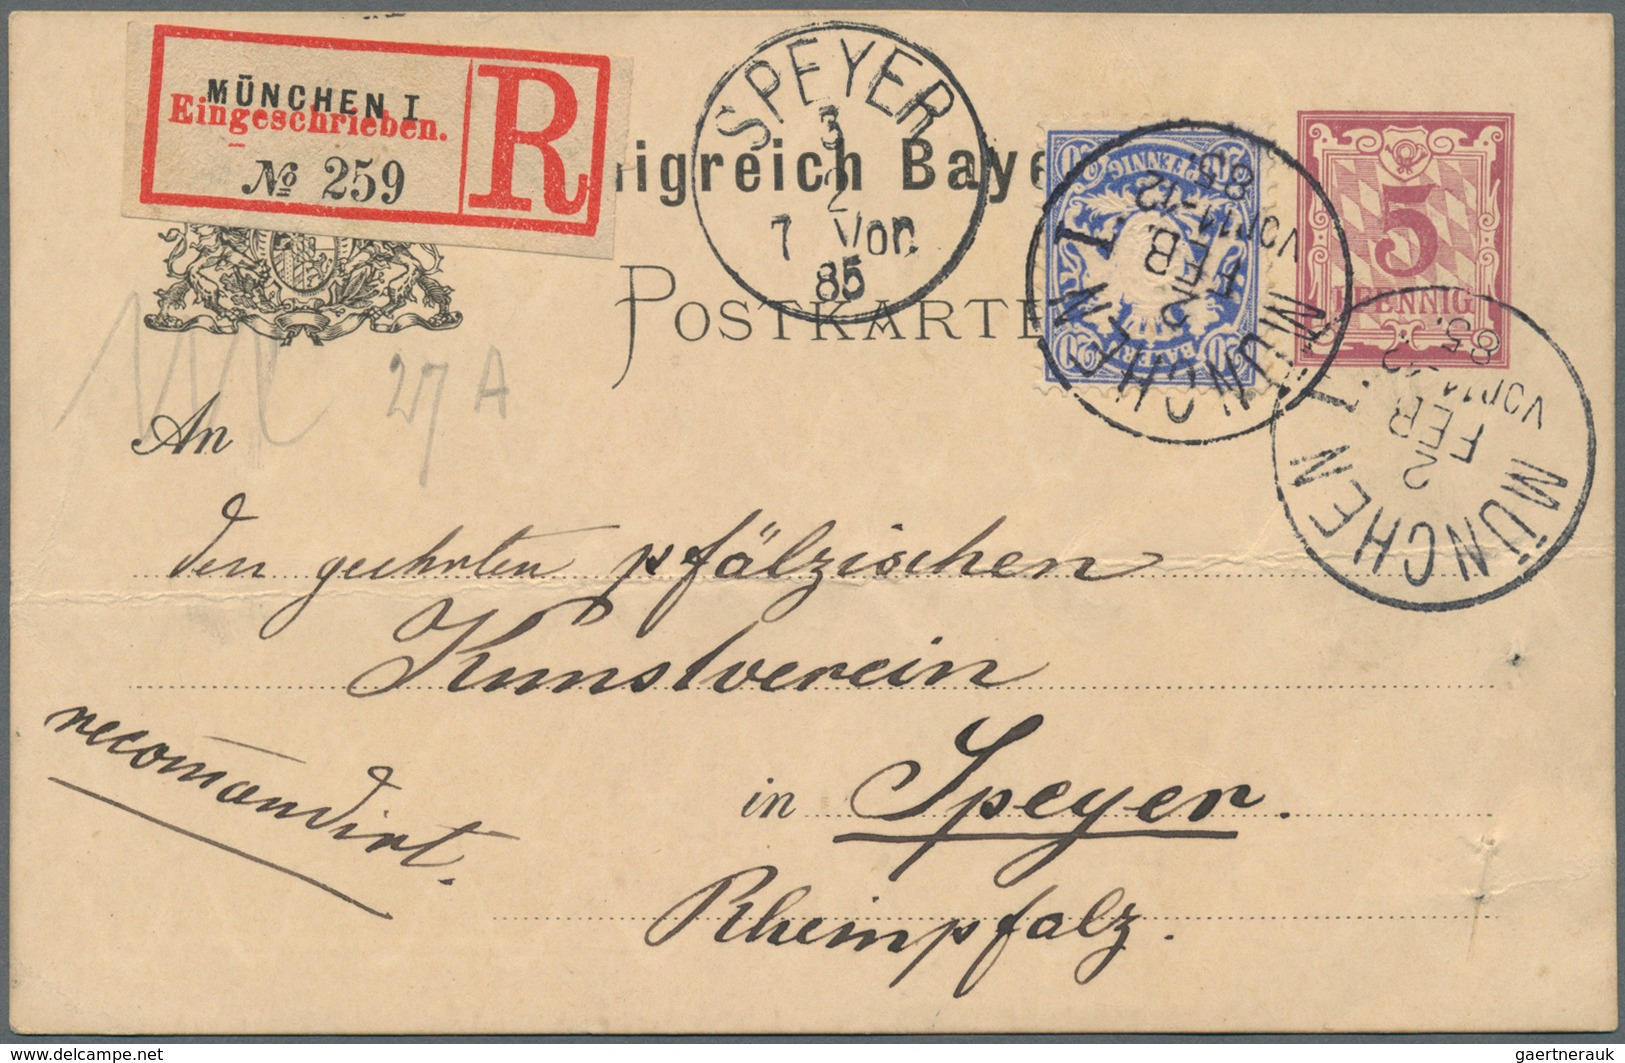 MÜNCHEN I
Eingeschrieben.
№ 259
R
SPEYER
3
2
7 Vor.
85
nigreich Baye
POSTKARTE
20 PFENNIG 20
BAYERN
20 20
MÜNCHEN I
2
FEB.
VOR 11-12
85.
5
PFENNIG
MÜNCHEN I
2
FEB.
VOR 11-12
85.
27 A
An
den geehrten pfälzischen
Kunstverein
recomandirt.
in Speyer.
Rheinpfalz.
www.delcampe.net
gaertnerauk